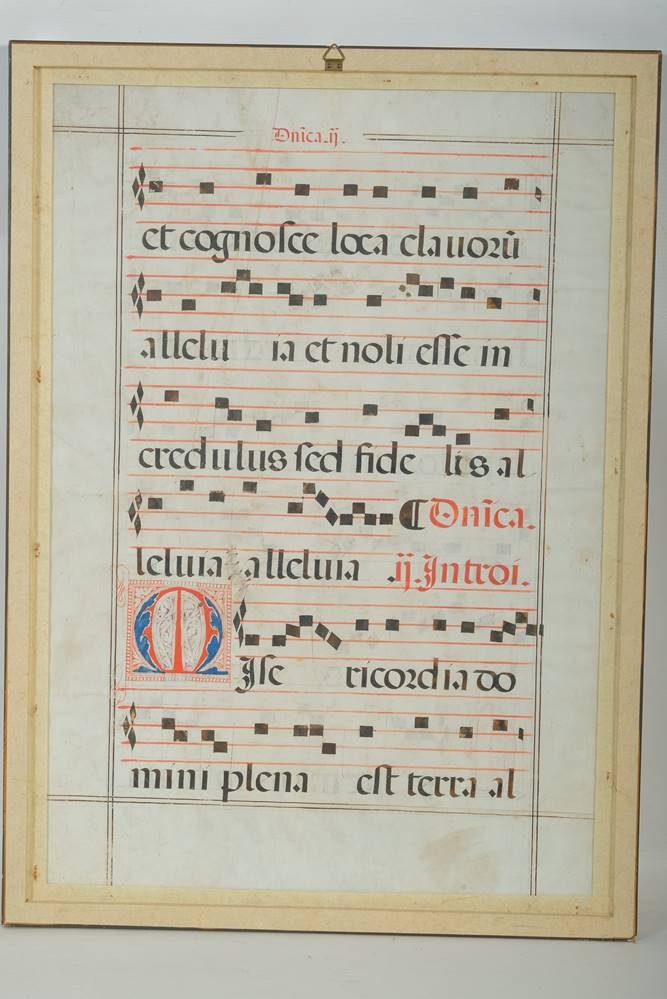 Dn̄ica.ij.
et cognosce loca clauorū
allelu ia et noli esse in
credulus sed fide lis al
Dn̄ica.
leluia alleluia .ij. Introi.
MIse ricordia do
mini plena est terra al